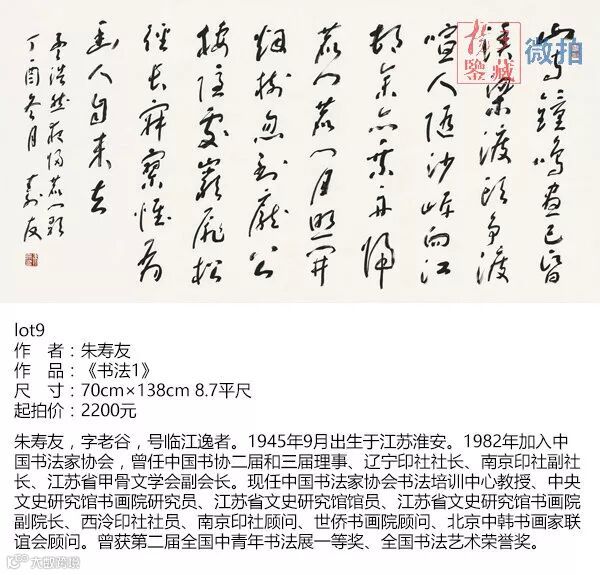 微拍
山寺鐘鳴晝已昏
漁梁渡頭爭渡
喧人隨沙岸向江
村余亦乘舟歸
鹿门鹿门月照開
煙樹忽到龐公
棲隱處巖扉松
徑長寂寥惟有
幽人自來去
孟浩然夜歸鹿门歌
丁酉冬月 壽友
lot9
作 者：朱寿友
作 品：《书法1》
尺 寸：70cm×138cm 8.7平尺
起拍价：2200元
朱寿友，字老谷，号临江逸者。1945年9月出生于江苏淮安。1982年加入中
国书法家协会，曾任中国书协二届和三届理事、辽宁印社社长、南京印社副社
长、江苏省甲骨文学会副会长。现任中国书法家协会书法培训中心教授、中央
文史研究馆书画院研究员、江苏省文史研究馆馆员、江苏省文史研究馆书画院
副院长、西泠印社社员、南京印社顾问、世侨书画院顾问、北京中韩书画家联
谊会顾问。曾获第二届全国中青年书法展一等奖、全国书法艺术荣誉奖。
大数跨境